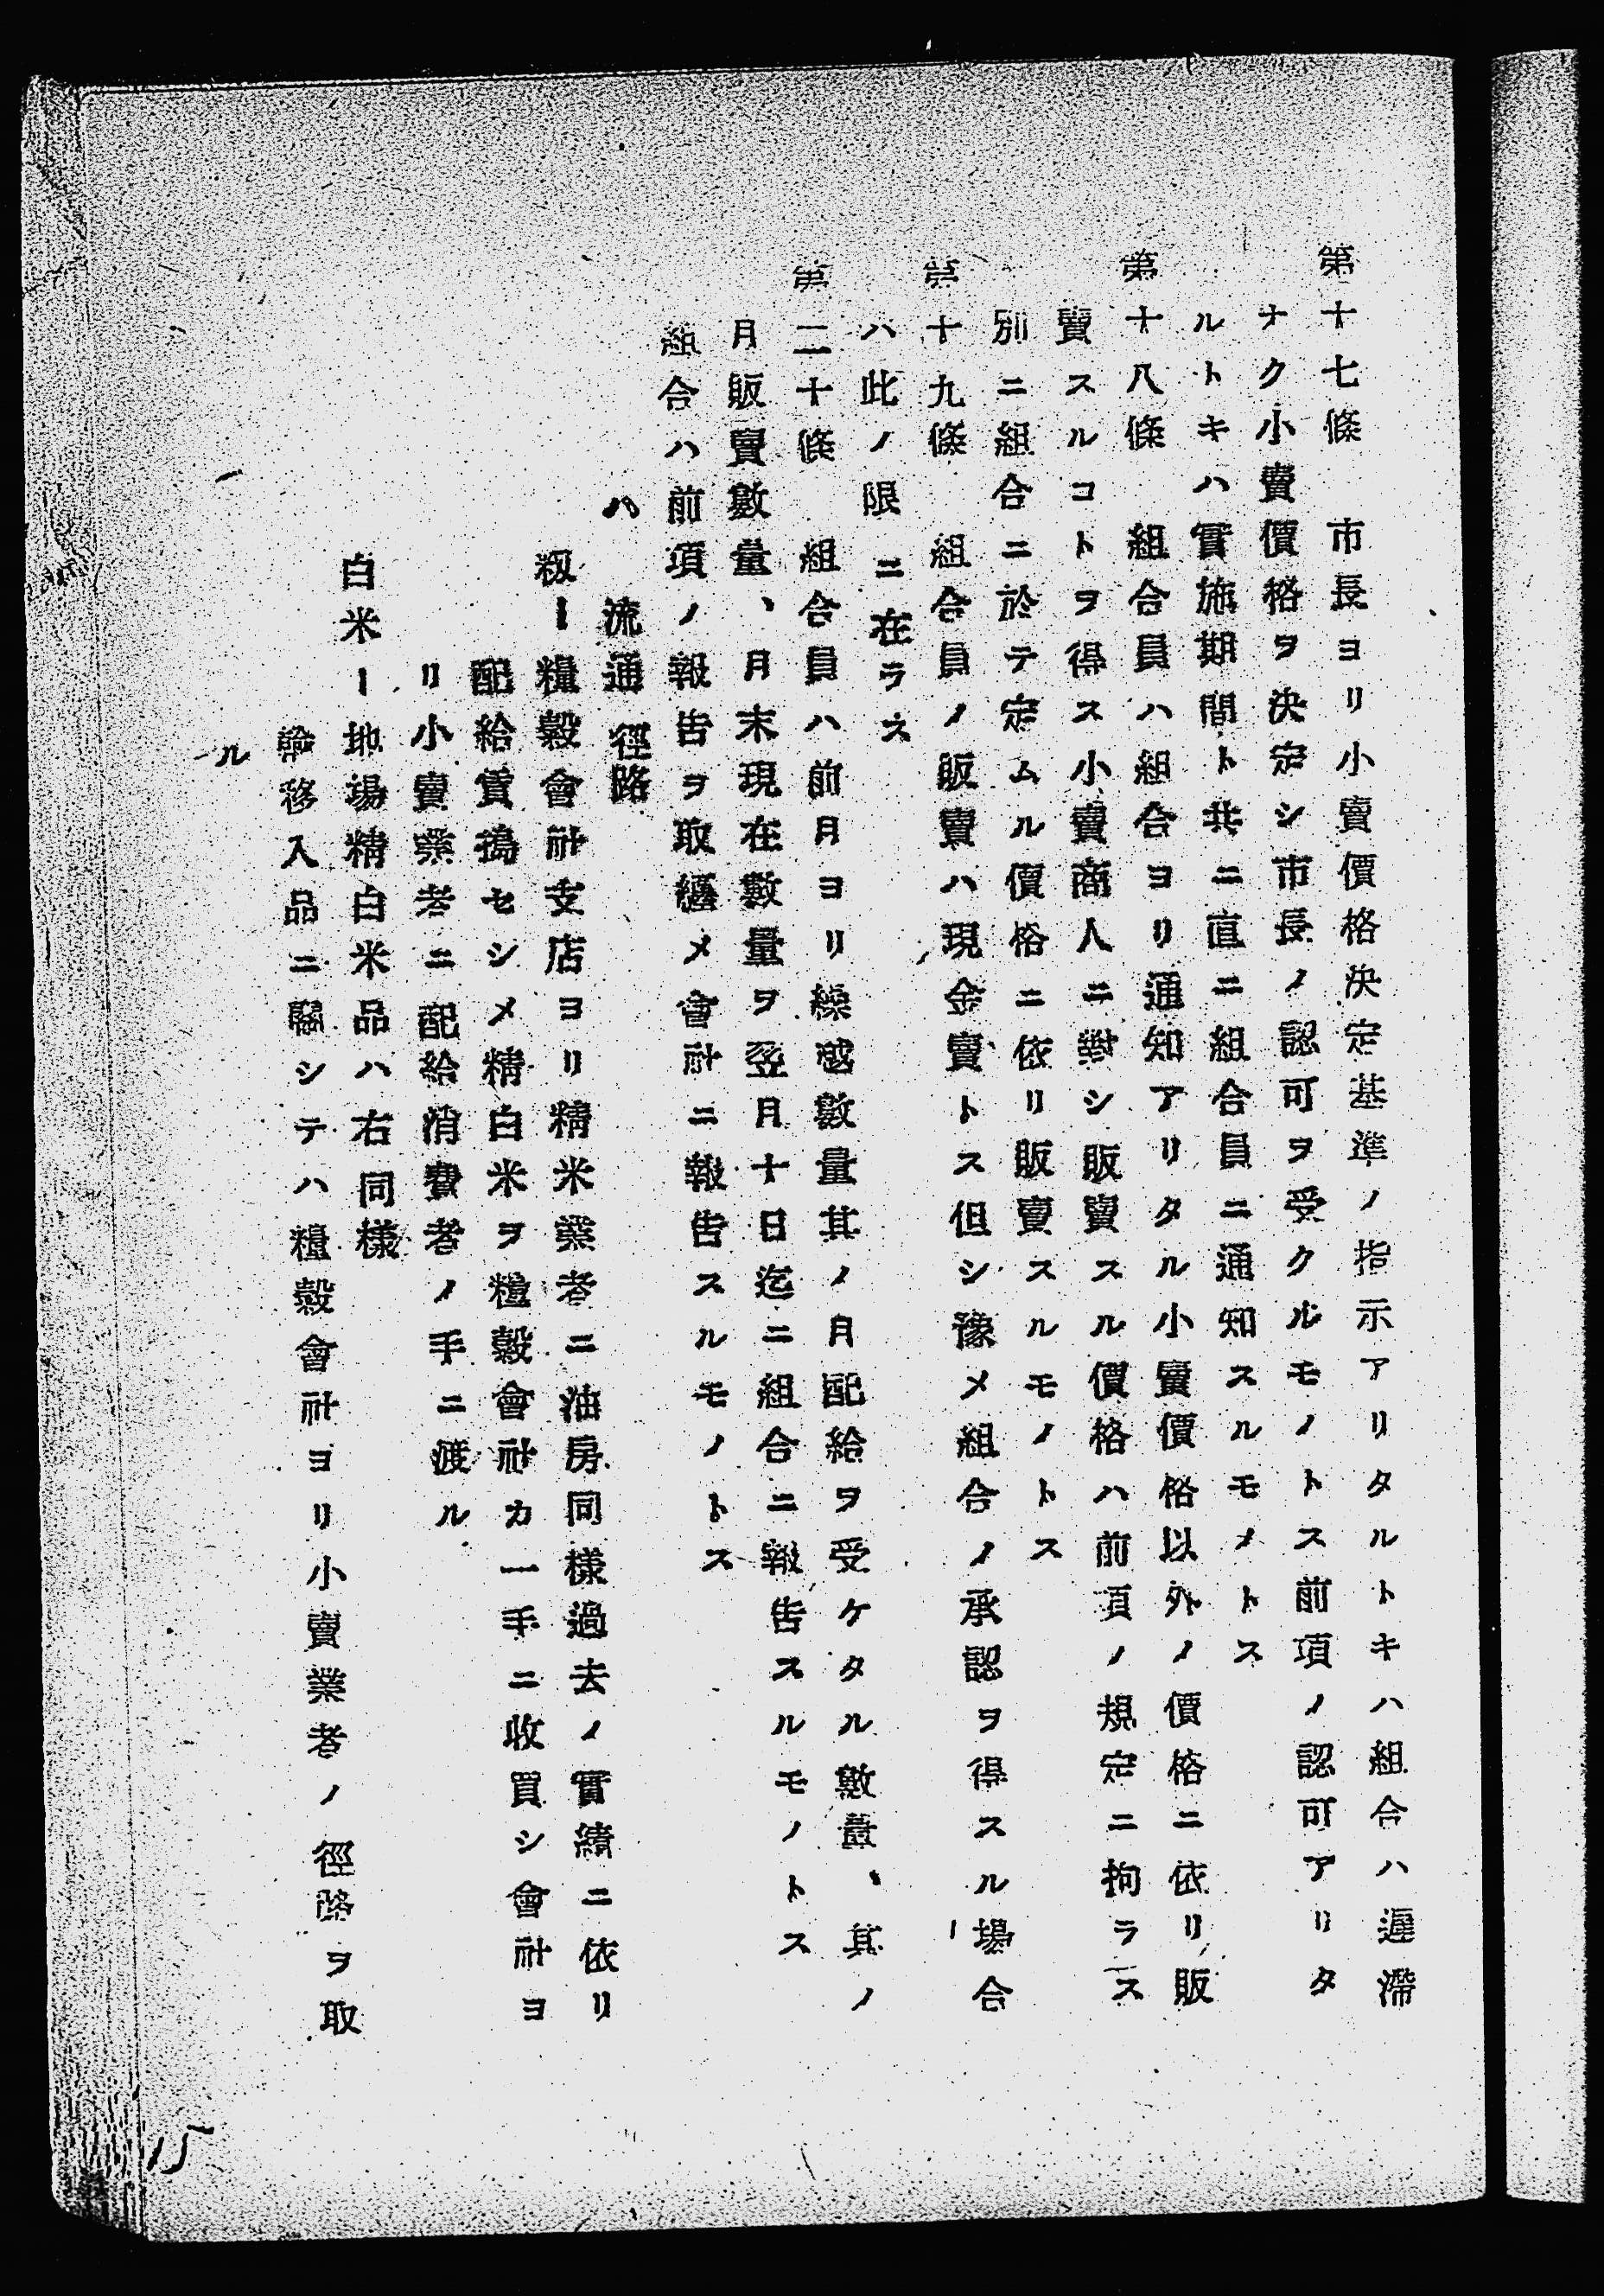 第十七條　市長ヨリ小賣價格決定基準ノ指示アリタルトキハ組合ハ遲滯
ナク小賣價格ヲ決定シ市長ノ認可ヲ受クルモノトス前項ノ認可アリタ
ルトキハ實施期間ト共ニ直ニ組合員ニ通知スルモメトス
第十八條　組合員ハ組合ヨリ通知アリタル小賣價格以外ノ價格ニ依リ販
賣スルコトヲ得ス小賣商人ニ對シ販賣スル價格ハ前項ノ規定ニ拘ラス
別ニ組合ニ於テ定ムル價格ニ依リ販賣スルモノトス
第十九條　組合員ノ販賣ハ現金賣トス但シ豫メ組合ノ承認ヲ得スル場合
ハ此ノ限ニ在ラス
第二十條　組合員ハ前月ヨリ繰越數量其ノ月配給ヲ受ケタル數量、其ノ
月販賣數量、月末現在數量ヲ翌月十日迄ニ組合ニ報告スルモノトス
組合ハ前項ノ報告ヲ取纏メ會社ニ報告スルモノトス
ハ　流通徑路
籾ー糧穀會社支店ヨリ精米業者ニ油房同樣過去ノ實績ニ依リ
配給賃搗セシメ精白米ヲ糧穀會社カ一手ニ收買シ會社ヨ
リ小賣業者ニ配給消費者ノ手ニ渡ル
白米ー地場精白米品ハ右同樣
輸移入品ニ關シテハ糧穀會社ヨリ小賣業者ノ徑路ヲ取
ル
15